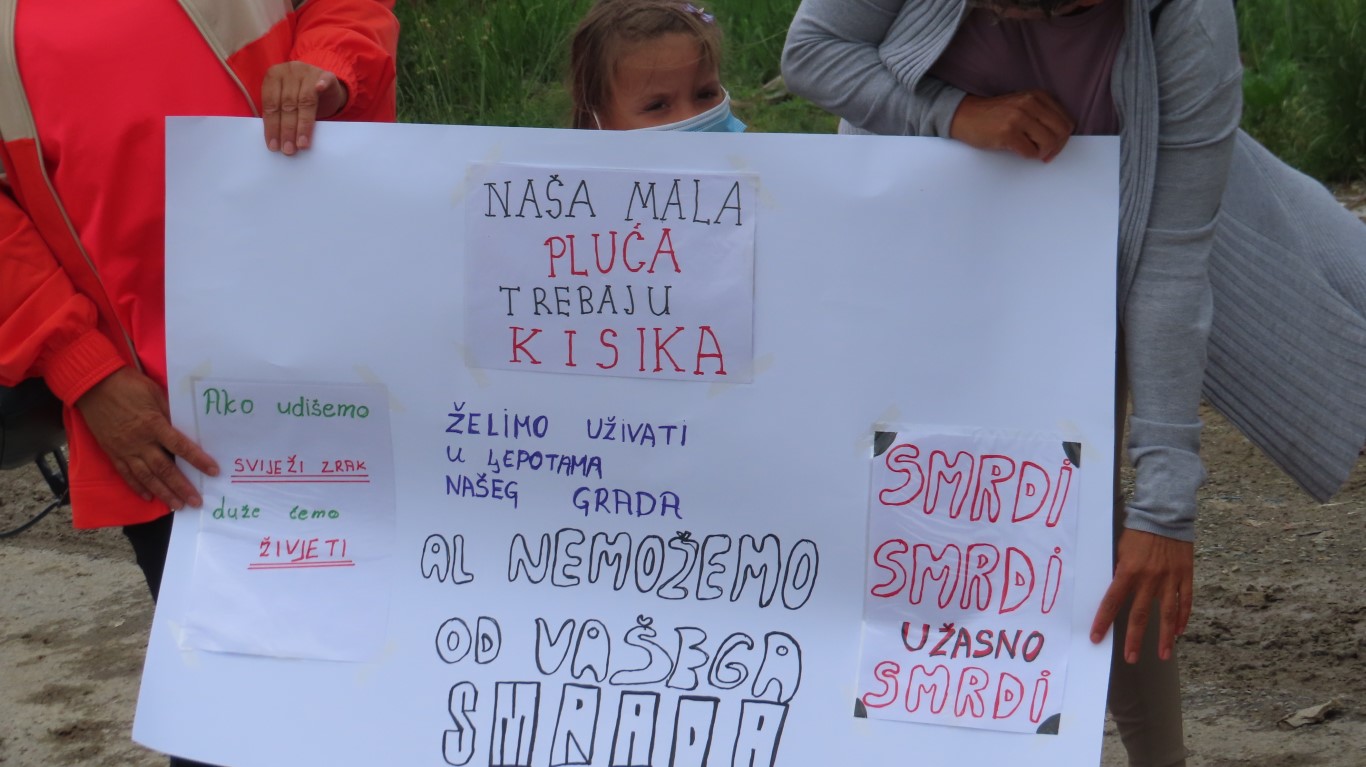 NAŠA MALA
PLUĆA
TREBAJU
KISIKA
Ako udišemo
SVIJEŽI ZRAK
duže ćemo
ŽIVJETI
ŽELIMO UŽIVATI
U LJEPOTAMA
NAŠEG GRADA
AL NEMOŽEMO
OD VAŠEGA
SMRADA
SMRDI
SMRDI
UŽASNO
SMRDI